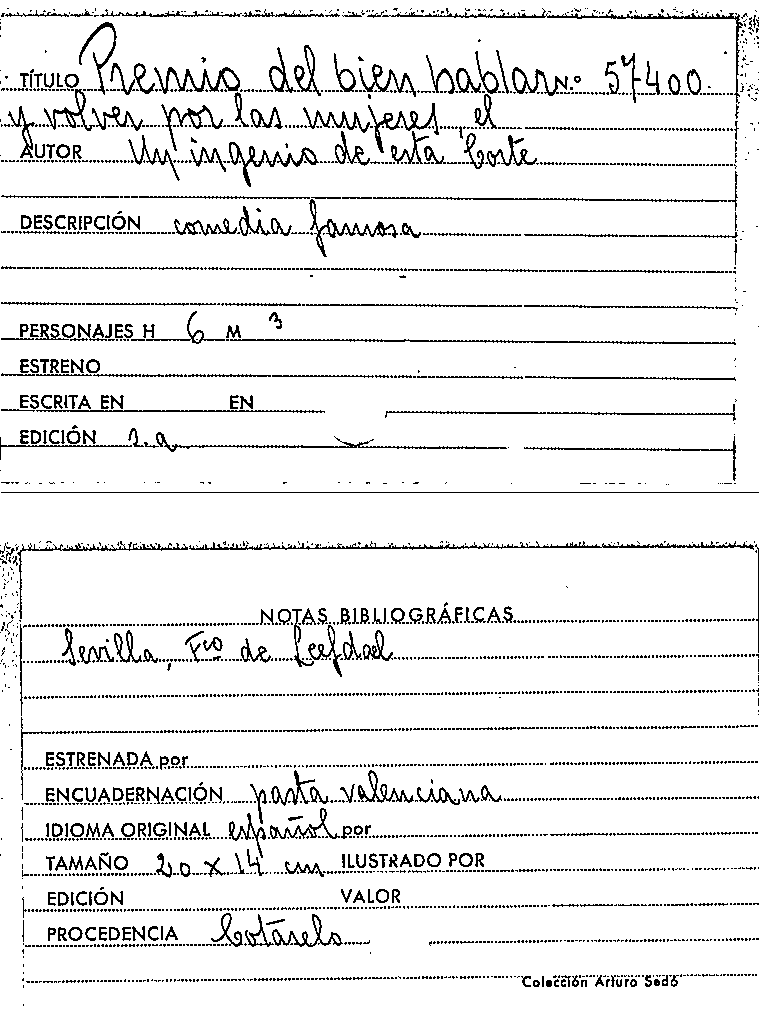 TÍTULO Premio del bien hablar N.º 57400.
y volver por las mujeres, el
AUTOR Un ingenio de esta Corte
DESCRIPCIÓN comedia famosa
PERSONAJES H 6 M 3
ESTRENO
ESCRITA EN EN
EDICIÓN s.a
NOTAS BIBLIOGRÁFICAS
Sevilla, Fco de Leefdael
ESTRENADA por
ENCUADERNACIÓN pasta valenciana
IDIOMA ORIGINAL español por
TAMAÑO 20 x 14 cm ILUSTRADO POR
EDICIÓN VALOR
PROCEDENCIA Cotarelo
Colección Arturo Sedó